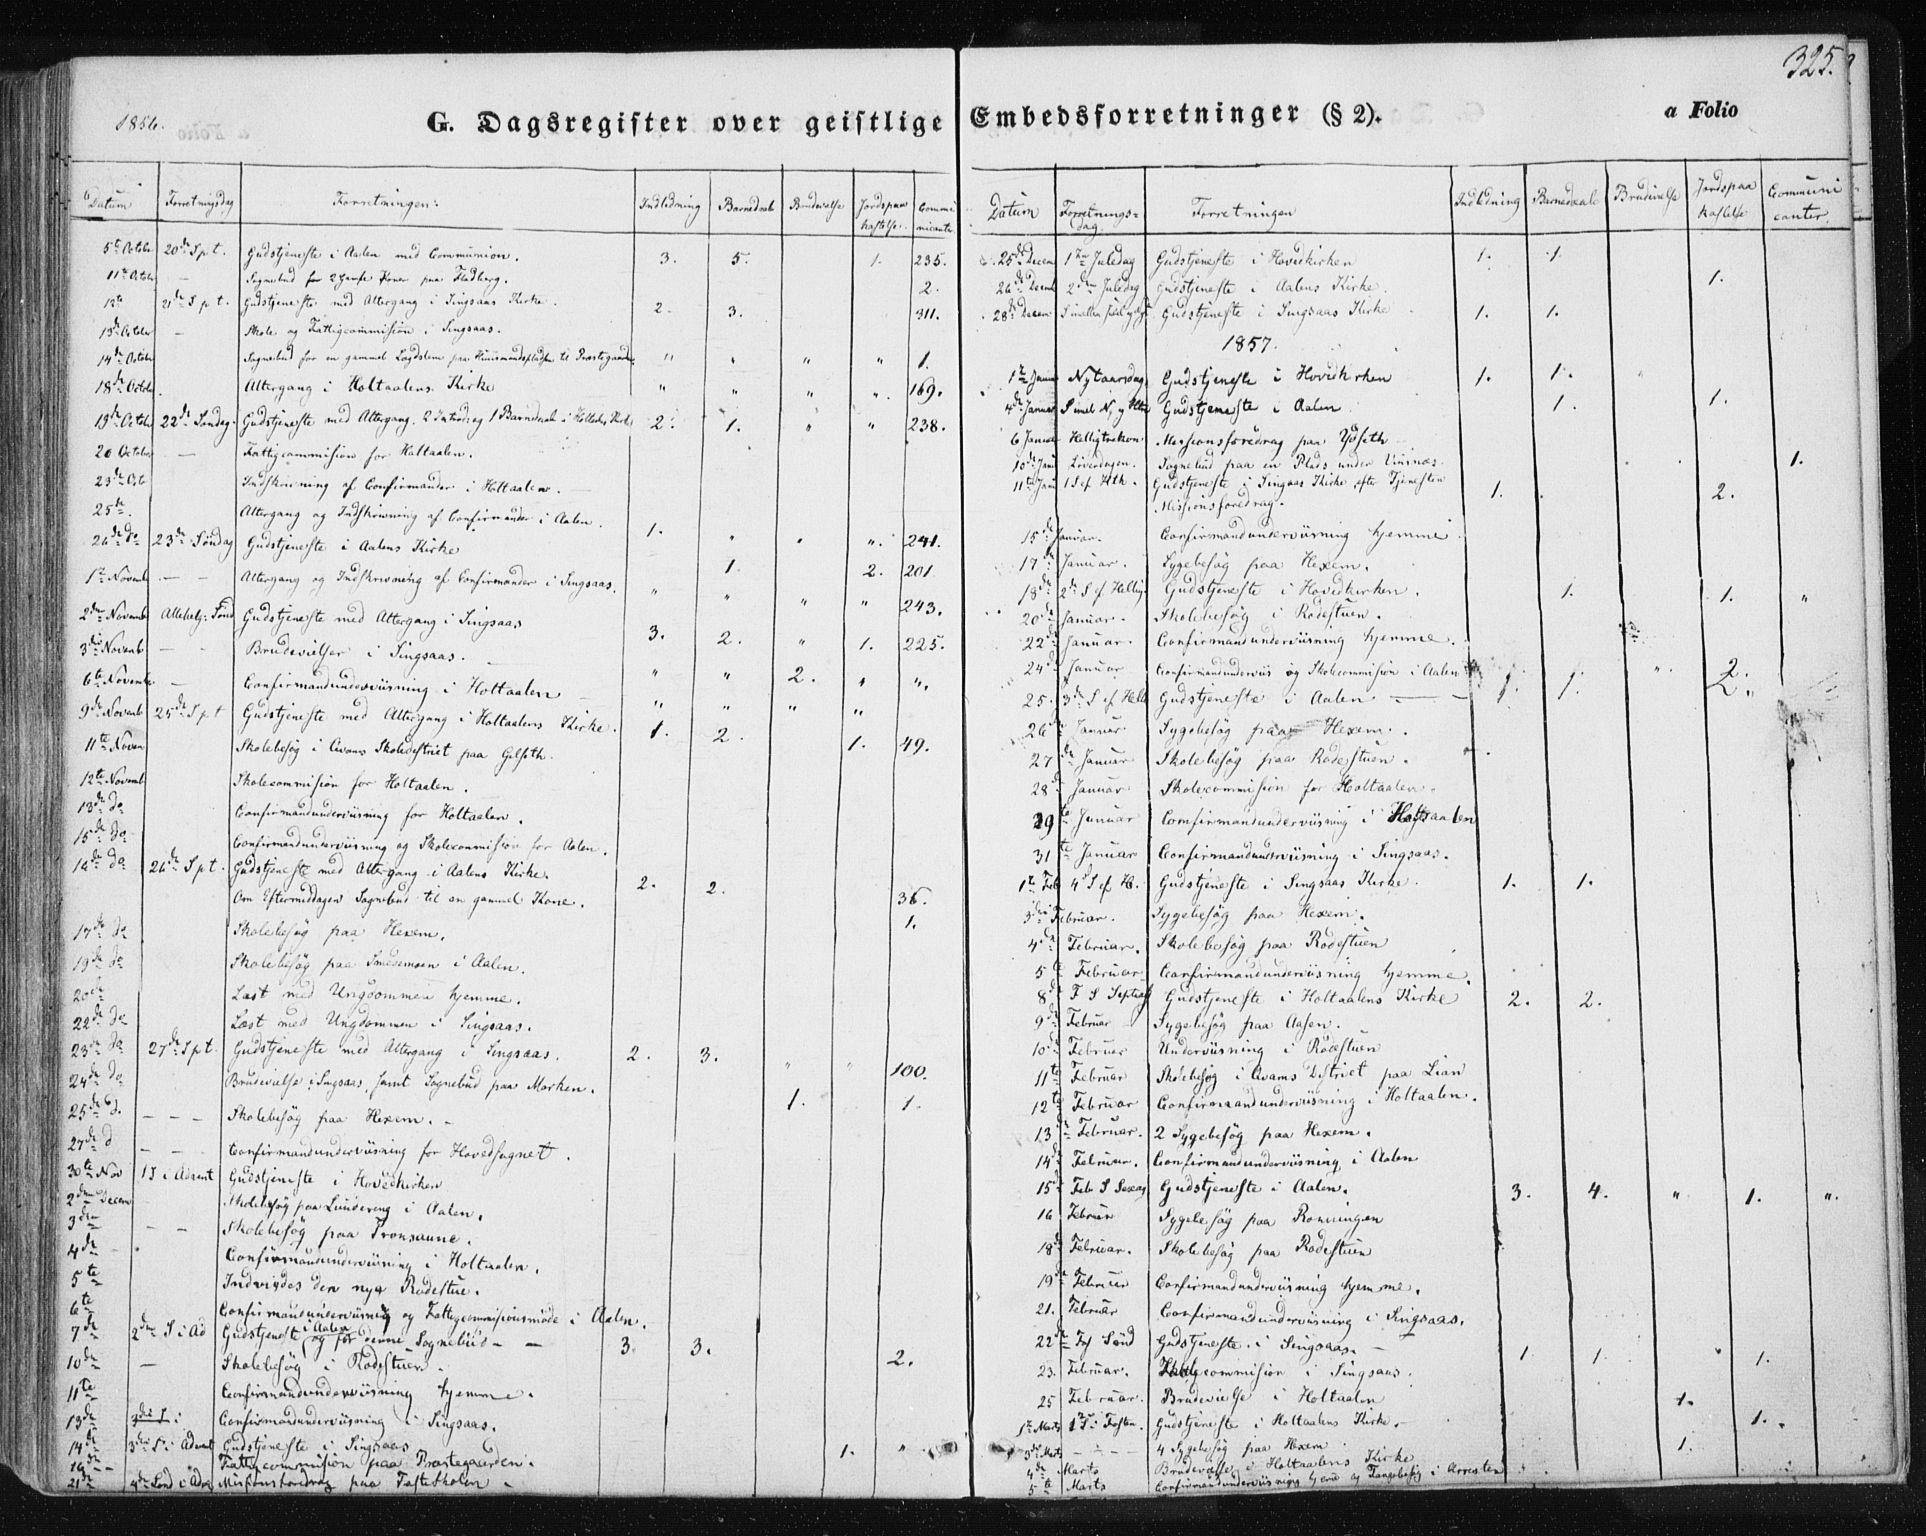 325.
1856.
G. Dagsregister over geistlige Embedsforretninger (§ 2).
a Folio
Datum Forretningsdag Forretningen: Indledning Barnedaab Brudevielse Jordspaakastelse. Communicanter
5te October 20de S p t. Gudstjeneste i Aalen med Communion. 3. 5. 1. 235.
11te Octobr Sognebud for 2 Koner paa Fladberg. 2.
12te 21de S p t. Gudstjeneste med Altergang i Singsaas Kirke. 2. 3. 311.
13de October — Skole og Fattigcommision i Singsaas.
14de Octobr Sognebud for en gammel Lægdslem paa Huusmandspladsen til Præstegaarden " " " " 1.
18de Octobr Altergang i Holtaalens Kirke " " " " 169.
19de Octobr 22de Søndag. Gudstjeneste med Altergang. 2 Introd. og 1 Barnedaab i Holtaalens Kirke 2. 1. " " 238.
20 October — Fattigcommision for Holtaalen.
23de Octb Indskrivning af Confirmander i Holtaalen. —
25de. Altergang og Indskrivning af Confirmander i Aalen.
26de do 23de Søndag Gudstjeneste i Aalens Kirke 1. " " ". 241.
1te Novemb — — Altergang og Indskrivning af Confirmander i Singsaas. 1. 2. 201
2den Novemb Allehelg: Sønd Gudstjeneste med Altergang i Singsaas " " " " 243.
3die Novemb — — Brudevielser i Singsaas. 3. 2. " 1. 225.
6te Novembr — Confirmandunderviisning i Holtaalen — " " 2. " ".
9de Novemb 25de S p t Gudstjeneste med Altergang i Holtaalens Kirke. " " " "
11te Novem Skolebesøg i Avoms Skoledistrict paa Gilseth. 1. 2. 1. 49.
12te Novemb Skolecommision for Holtaalen.
13de do Confirmandunderviisning for Holtaalen.
15de do Confirmandunderviisning og Skolecommision for Aalen.
16de do 26de S p t. Gudstjeneste med Altergang i Aalens Kirke. 2. 2.
Om Eftermiddagen Sognebud til en gammel Kone. 36.
17de do Skolebesøg paa Hexem. 1.
19de do Skolebesøg paa Smedemoen i Aalen.
20de Læst med Ungdommen hjemme.
22de do Læst med Ungdommen i Singsaas.
23de do 27de S p t. Gudstjeneste med Altergang i Singsaas. 2. 3. " " 100.
24de do Brudevielse i Singsaas, samt Sognebud paa Morken. 1. 1.
25de d. — — — Skolebesøg paa Hexem. —
27de d — — — Confirmandunderviisning for Hovedsognet.
30te Nov 1 S i Advent Gudstjeneste i Hovedkirken
2den Decem Skolebesøg paa Lundereng i Aalen.
3die — — Skolebesøg paa Tronsaune.
4de — Confirmandunderviisning i Holtaalen.
5te Indviedes den nye Rodestue.
6te Confirmandunderviisning og Fattigcommisionsmøde i Aalen.
7de 2den S i Ad Gudstjeneste i Aalen og før denne Sognebud — — 3. 3. 2.
10de — Skolebesøg i Rodestuen.
11te Confirmandunderviisning hjemme.
13de 3die S. i Confirmandunderviisning i Singsaas.
14de 3die S. i Advent Gudstjeneste i Singsaas 1. "
19de — — Fattigcommision paa Præstegaarden.
21de 4de Sønd i Adv Missionsforedrag paa Fasteskolen —
Datum Forretningsdag. Forretningen Indledning Barnedaab Brudevielse Jordspaakastelse Communicanter.
25de Decem 1ste Juledag Gudstjeneste i Hovedkirken 1. 1.
26de Decemb 2den Juledag Gudstjeneste i Aalens Kirke. 1.
28de Decem S mellem Juul og Nyt Gudstjeneste i Singsaas Kirke 1. 1.
1857.
1te Januar Nytaarsdag Gudstjeneste i Hovedkirken 1. 1. "
4de Januar S imel N. og Hltr Gudstjeneste i Aalen 1. 1.
6 Januar Helligtrekon. Missionsforedrag paa Ydseth
10de Janu Løverdagen. Sognebud paa en Plads under Viisnæs. 1.
11te Janu 1 S ef Htk. Gudstjeneste i Singsaas Kirke efter Tjenesten 1. 2.
Missionsforedrag.
15de Januar. Confirmandunderviisning hjemme.
17de Januar. Sygebesøg paa Hexem.
18de 2de S ef Hellig Gudstjeneste i Hovedkirken. 1. 1. "
20de Januar. Skolebesøg i Rodestuen.
22de Januar. Confirmandunderviisning hjemme.
24de Januar Confirmandunderviis og Skolecommision i Aalen 1. 1. " 2.
25. 3de S ef Helli Gudstjeneste i Aalen — — 1. 1. 2 "
26de Januar Sygebesøg paa Hexem.
27de Januar Skolebesøg paa Rodestuen.
28de Januar Skolecommision for Holtaalen.
29te Januar Confirmandunderviisning i Holtaalen
31te Januar Confirmandunderviisning i Singsaas.
1te Feb 4de S ef H. Gudstjeneste i Singsaas Kirke. 1. 1.
3die Februar. Sygebesøg paa Hexem.
4de Februar. Skolebesøg paa Rodestuen
5te Februar Confirmandunderviisning hjemme.
8de F S Septuag Gudstjeneste i Holtaalens Kirke 2. 2.
9de Februar Sygebesøg paa Aasen.
10de Februar Underviisning i Rodestuen
11te Februar Skolebesøg i Avoms District paa Lian
12te Februar Confirmandunderviisning i Holtaalen.
13de Februar. 2 Sygebesøg paa Hexem.
14de Februar. Confirmandunderviisning i Aalen
15de Feb S Sexag Gudstjeneste i Aalen. 3. 4. " 1. ".
16 Februar Sygebesøg paa Ronningen
18de Februar. Skolebesøg paa Rodestuen
19de Februar Confirmandunderviisning hjemme.
21. Februar Confirmandunderviisning i Singsaas.
22de Fst Sønd Gudstjeneste i Singsaas. — 1. 1. " 1.
23. Februar. Skolecommision i Singsaas.
25 Februar Brudevielse i Holtaalen 1.
1te Marts 1 S. i Fasten. Gudstjeneste i Holtaalens Kirke. — 1.
3die Marts — — — 4 Sygebesøg paa Hexem 1.
4de Marts Brudevielse i Holtaalens Kirke
5te Marts Confirmandunderviisning hjeme og Fangebesøg i Arresten